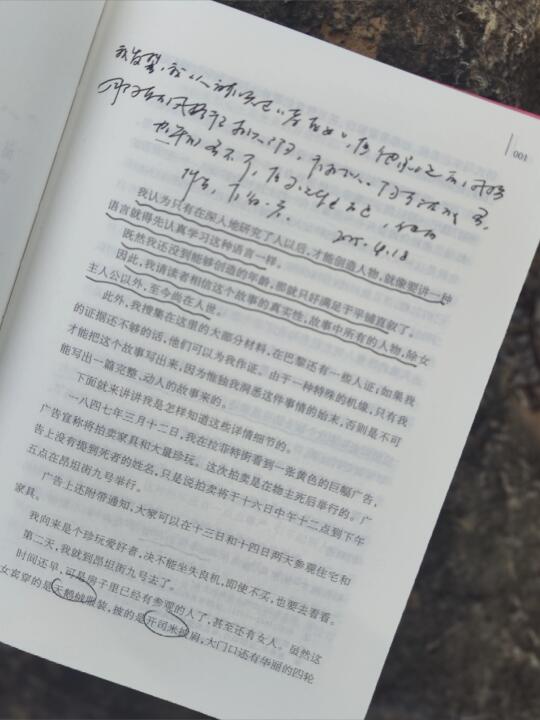 001
2025.4.18
我认为只有在深入地研究了人以后，才能创造人物，就像要讲一种
语言就得先认真学习这种语言一样。
既然我还没到能够创造的年龄，那就只好满足于平铺直叙了。
因此，我请读者相信这个故事的真实性，故事中所有的人物，除女
主人公以外，至今尚在人世。
此外，我搜集在这里的大部分材料，在巴黎还有一些人证；如果我
的证据还不够的话，他们可以为我作证。由于一种特殊的机缘，只有我
才能把这个故事写出来，因为惟独我洞悉这件事情的始末，否则是不可
能写出一篇完整、动人的故事来的。
下面就来讲讲我是怎样知道这些详情细节的。
一八四七年三月十二日，我在拉菲特街看到一张黄色的巨幅广告，
广告宣称将拍卖家具和大量珍玩。这次拍卖是在物主死后举行的。广
告上没有提到死者的姓名，只是说拍卖将于十六日中午十二点到下午
五点在昂坦街九号举行。
广告上还附带通知，大家可以在十三日和十四日两天参观住宅和
家具。
我向来是个珍玩爱好者，决不能坐失良机，即使不买，也要去看看。
第二天，我就到昂坦街九号去了。
时间还早，可是房子里已经有参观的人了，甚至还有女人。虽然这
女宾穿的是天鹅绒服装，披的是开司米披肩，大门口还有华丽的四轮